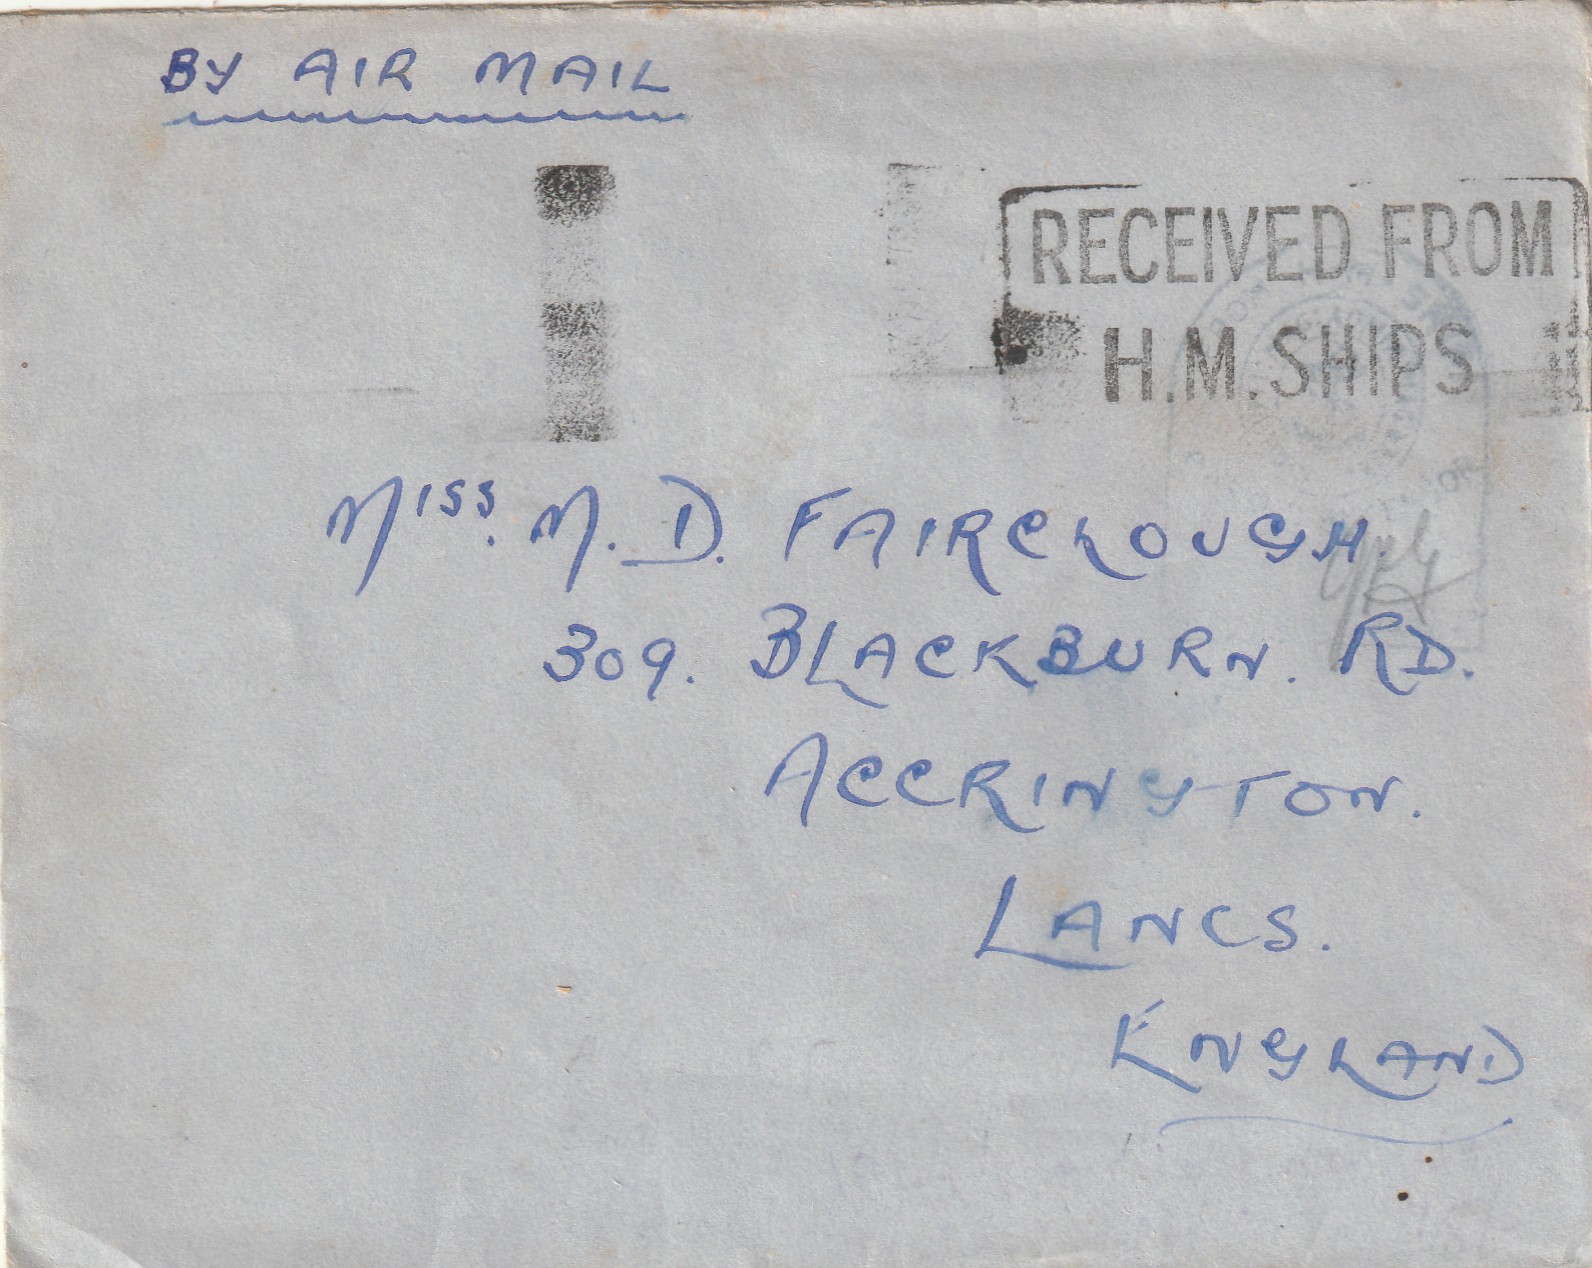 BY AIR MAIL
RECEIVED FROM
H.M.SHIPS
MISS. M. D. FAIRCLOUGH.
309. BLACKBURN. RD.
ACCRINGTON.
LANCS.
ENGLAND